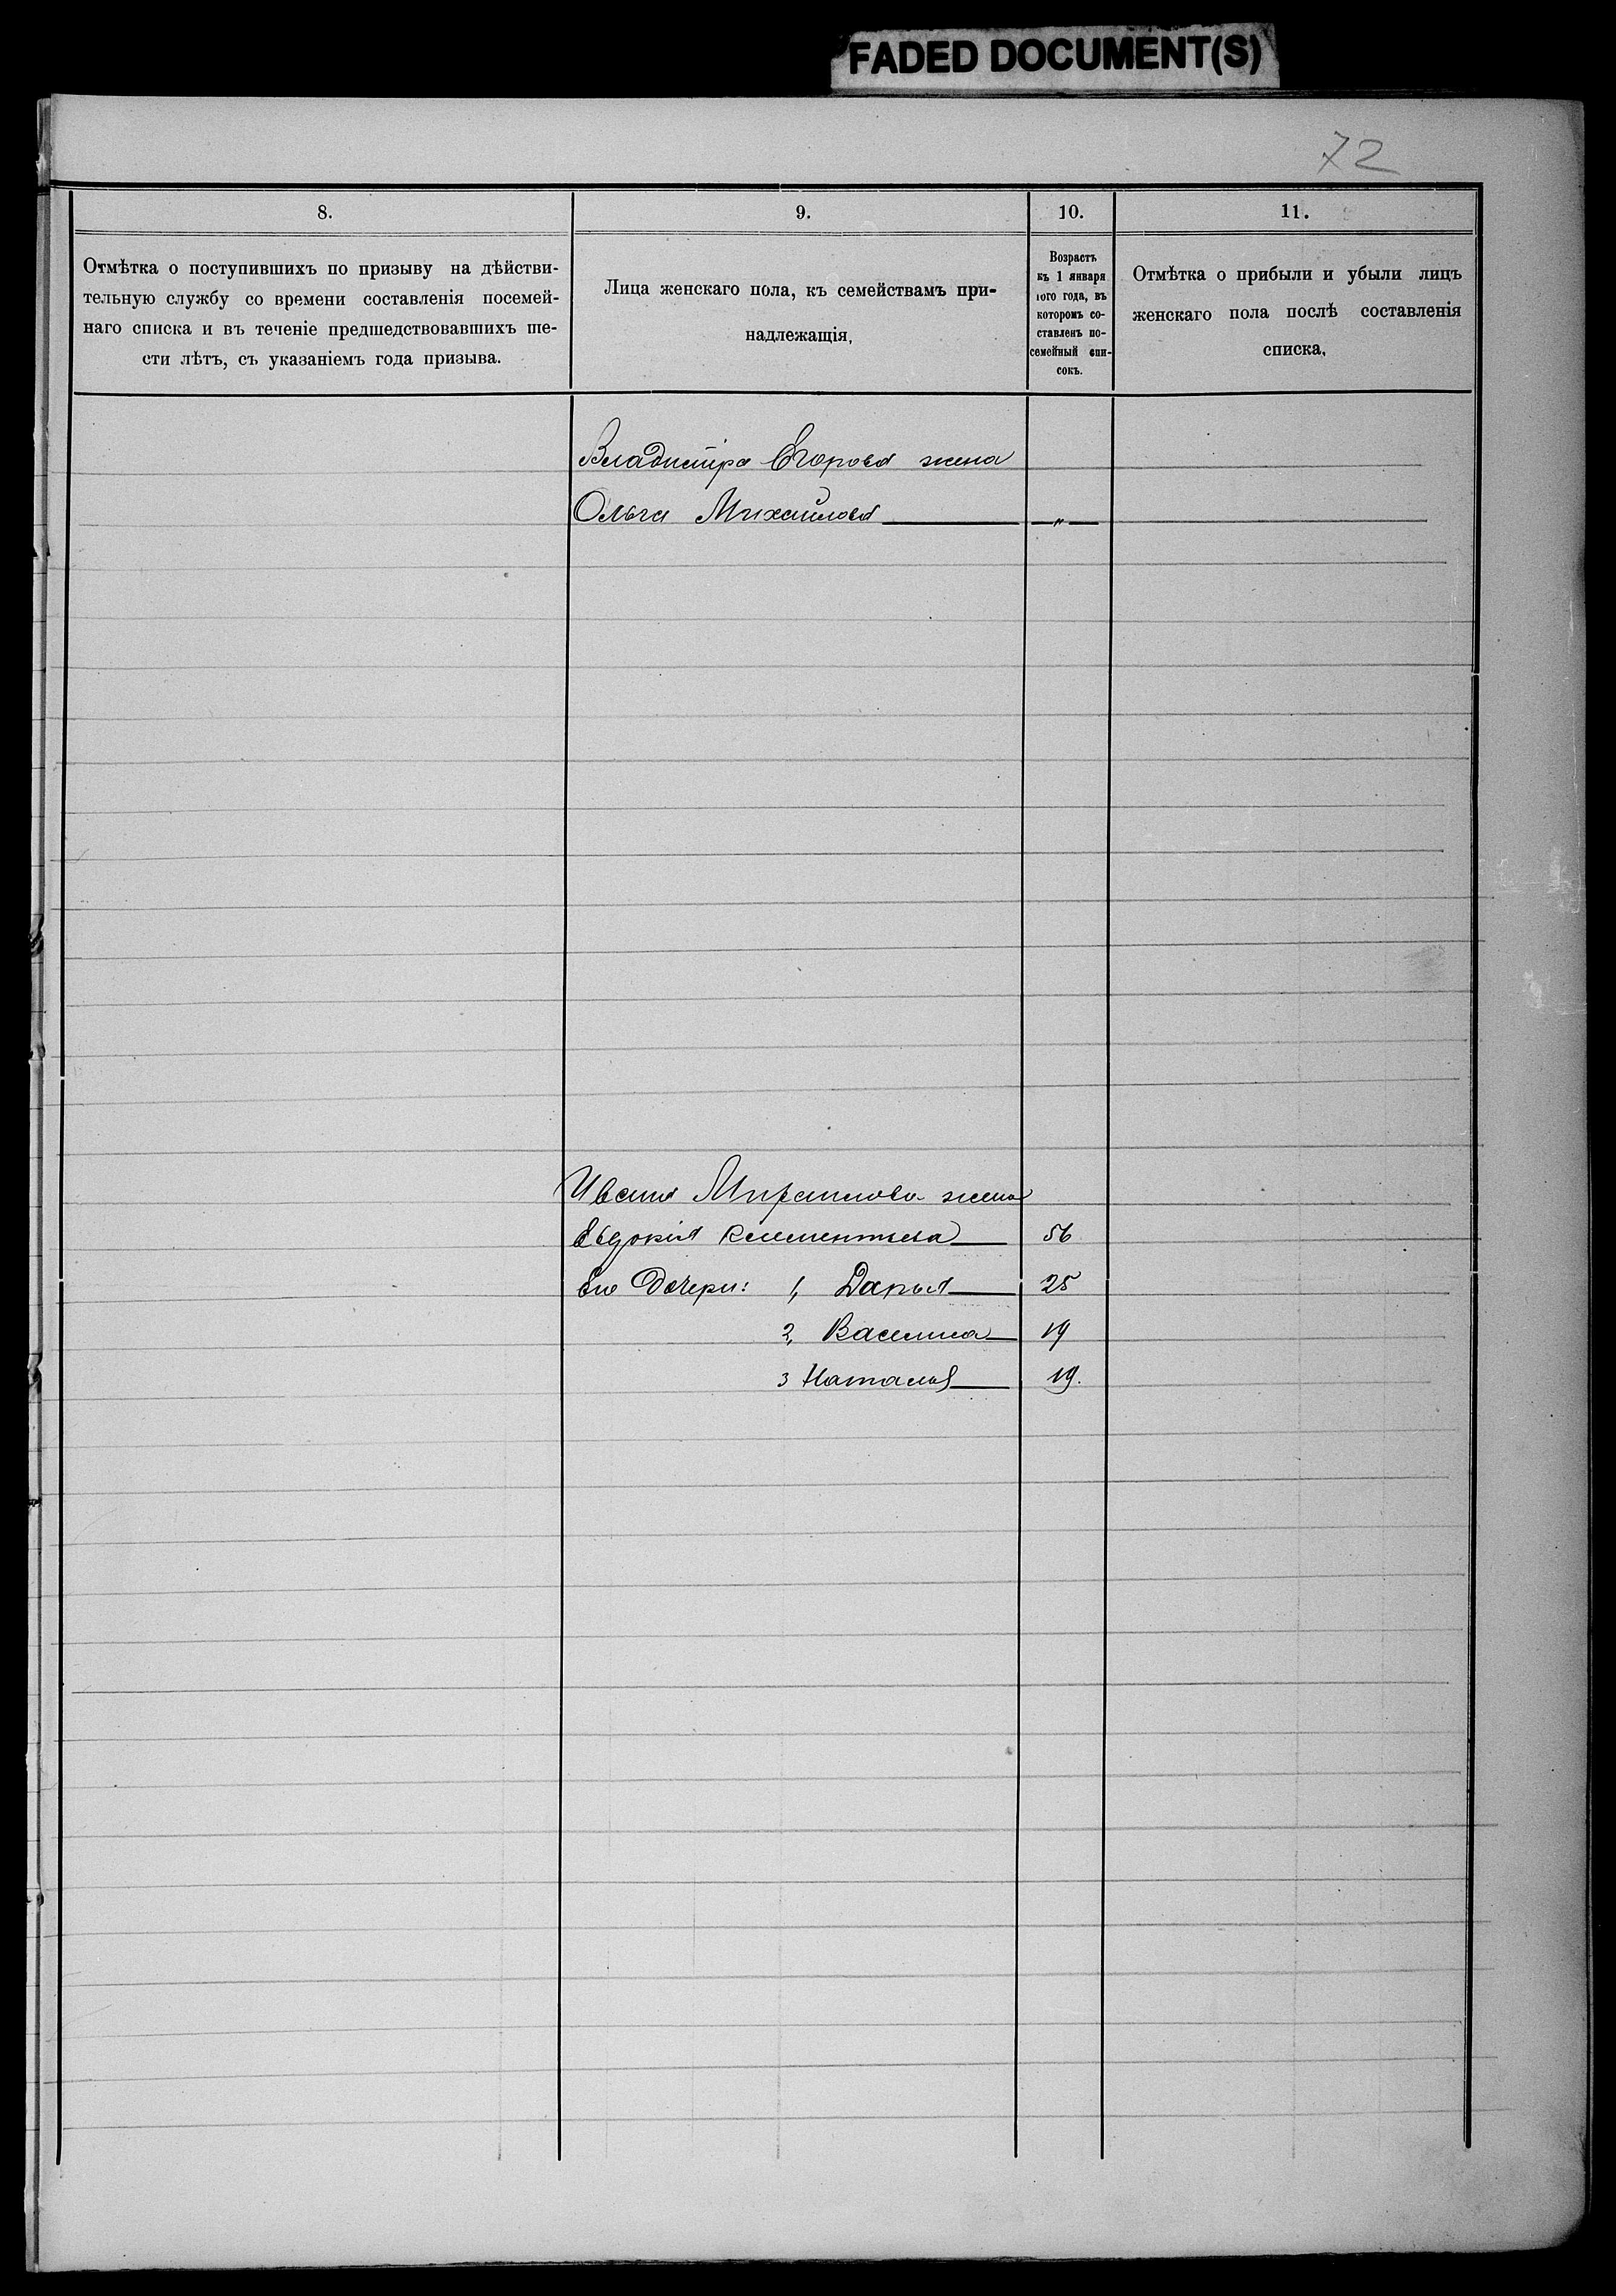 FADED DOCUMENT(S)
72
8.
9.
10.
11.
Отмѣтка о поступившихъ по призыву на дѣйстви-
тельную службу со времени составленія посемей-
наго списка и въ теченіе предшедствовавшихъ ше-
сти лѣтъ, съ указаніемъ года призыва.
Лица женскаго пола, къ семействамъ при-
надлежащія,
Возрастъ
къ 1 января
1ого года, въ
которомъ со-
ставленъ по-
семейный спи-
сокъ.
Отмѣтка о прибыли и убыли лицъ
женскаго пола послѣ составленія
списка,
Владиміра Егорова жена
Ольга Михайлова „
Ивана жена
Евдокія Клементьева 56
Его Дочери: 1, Дарья 25
2, Василиса 19
3 Наталья 19.